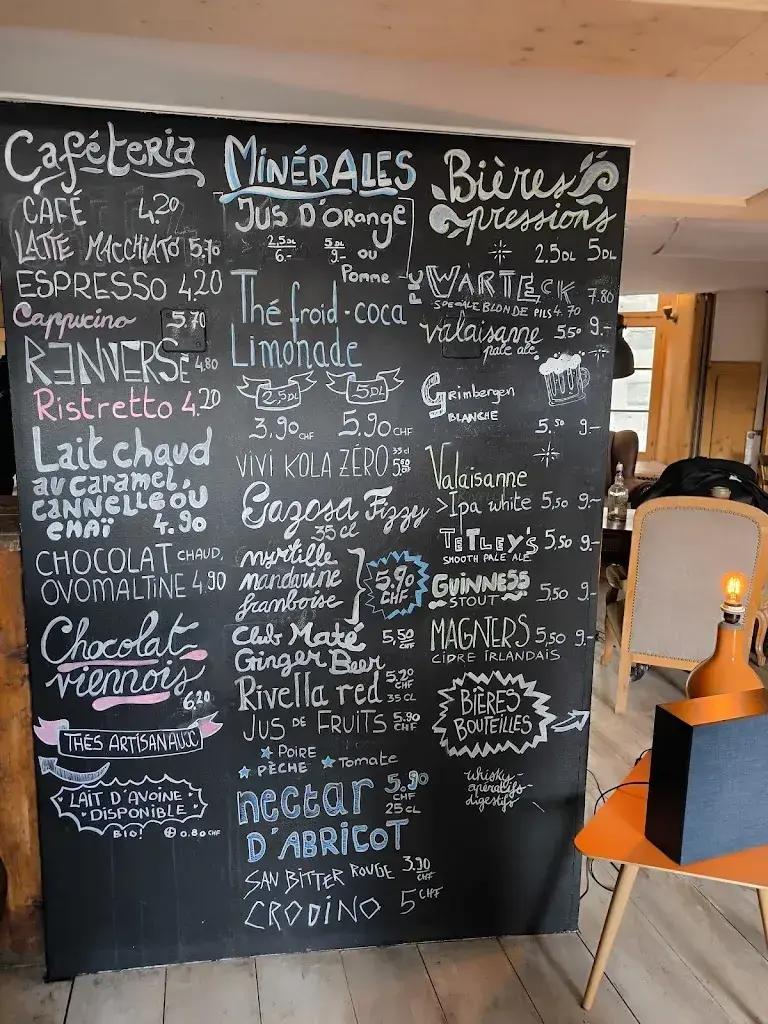 Cafétéria
CAFÉ 4.20
LATTE MACCHIATO 5.70
ESPRESSO 4.20
Cappucino 5.70
RENVERSÉ 4.80
Ristretto 4.20
Lait chaud
au caramel,
CANNELLE OU
CHAÏ 4.90
CHOCOLAT CHAUD,
OVOMALTINE 4.90
Chocolat
viennois
6.20
THÉS ARTISANAUX
LAIT D'AVOINE
DISPONIBLE
BIO! + 0.80 CHF
MINÉRALES
JUS D'ORANGE
2,5DL 5DL
6.- 9.- OU
Pomme
Thé froid - coca
Limonade
2,5DL 5DL
3.90 CHF 5.90 CHF
VIVI KOLA ZÉRO 33 cl
Gazosa Fizzy
35 cl
myrtille
mandarine
framboise
5.90
CHF
Club Maté 5,50 CHF
Ginger Beer
Rivella red 5.20 CHF
35 CL
JUS DE FRUITS 5.90 CHF
POIRE
PÊCHE Tomate
nectar 5.90
CHF
25 CL
D'ABRICOT
SAN BITTER ROUGE 3.90 CHF
CRODINO 5 CHF
Bières
pressions
2.5DL 5DL
WARTECK 7.80
SPÉCIALE BLONDE PILS 4.70
Valaisanne 5.50 9.-
pale ale
Grimbergen
BLANCHE
5,50 9.-
Valaisanne
>Ipa white 5,50 9.-
TETLEY'S 5,50 9.-
SMOOTH PALE ALE
GUINNESS 5,50 9.-
STOUT
MAGNERS 5,50 9.-
CIDRE IRLANDAIS
BIÈRES
BOUTEILLES
whisky-
apéritifs-
digestifs